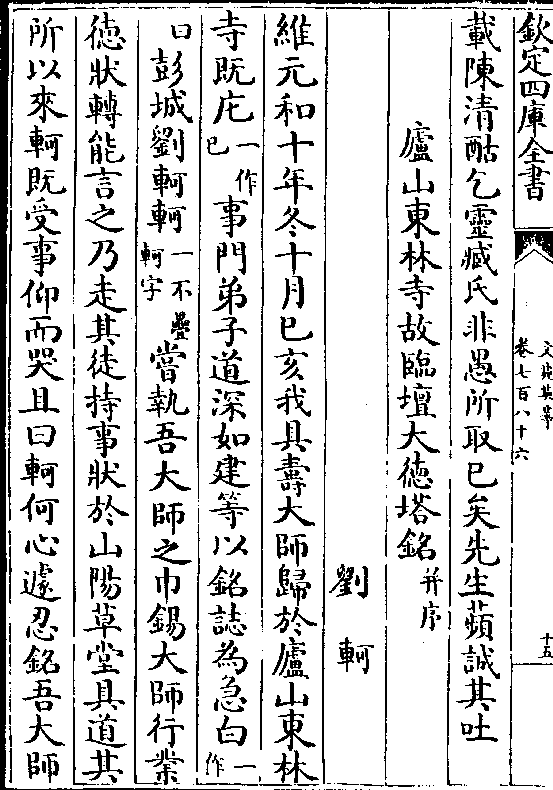 欽定四庫全書
文苑英華
卷七百八十六
十五
載陳清酤乞靈臧氏非愚所取已矣先生蘋誠其吐
廬山東林寺故臨壇大德塔銘并序
劉軻
維元和十年冬十月己亥我具壽大師歸於廬山東林
寺既庀一作已事門弟子道深如建等以銘誌為急白一作
曰彭城劉軻軻一不疊軻字嘗執吾大師之巾錫大師行業
徳狀轉能言之乃走其徒持事狀於山陽草堂具道其
所以來軻既受事仰而哭且曰軻何心遽忍銘吾大師